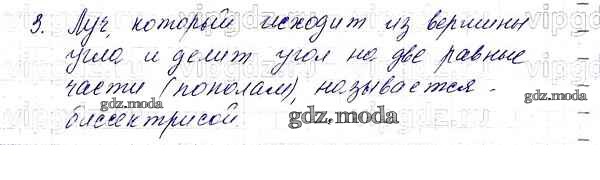 3. Луч, который исходит из вершины
угла и делит угол на две равные
части (пополам), называется -
биссектрисой
gdz.moda
gdz.moda
gdz.moda